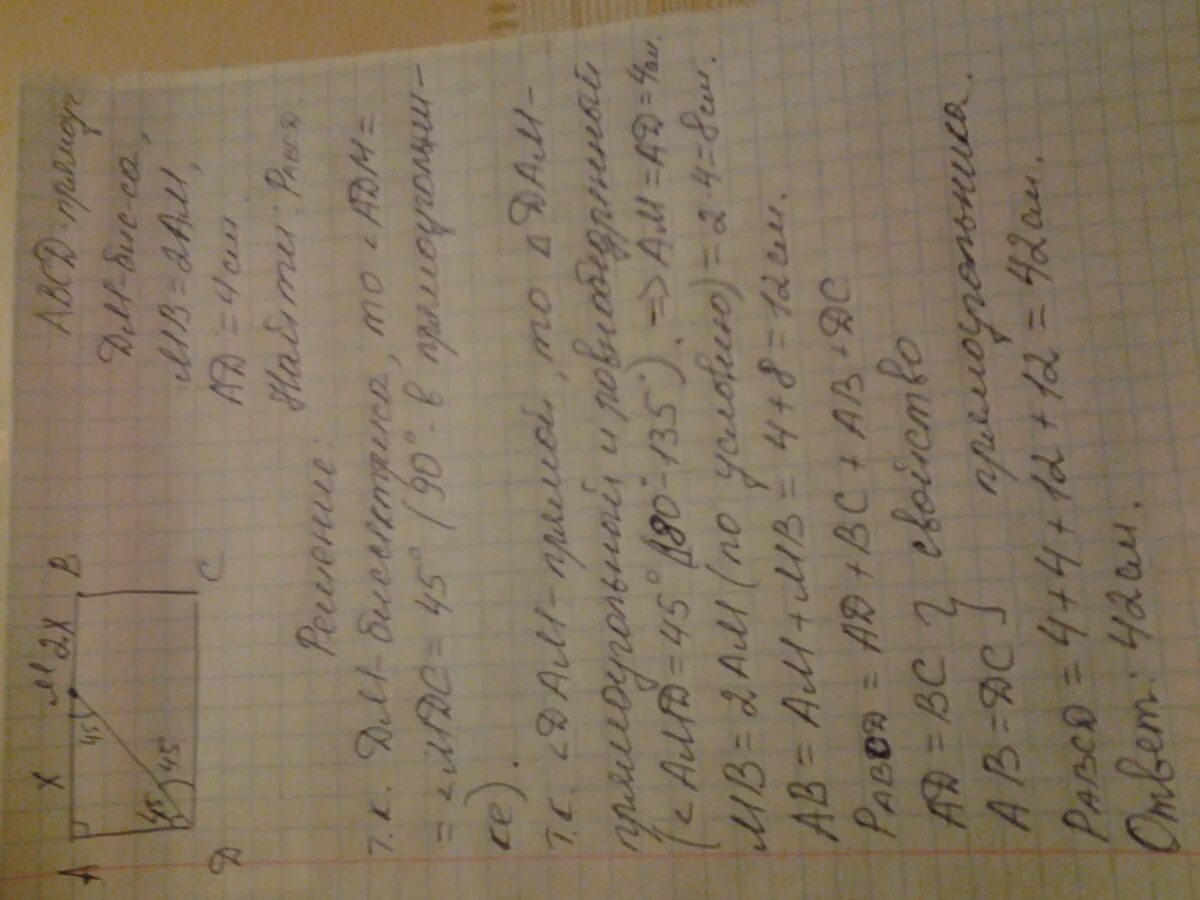 A x M 2x B
45
45 45°
D C
ABCD-прямоуг
DM-бис-са,
MB=2AM,
AD=4см
Найти: PABCD
Решение:
т.к. DM-биссектриса, то <ADM=
=<MDC=45° (90°-в прямоугольни-
ке).
т.к. <DAM-прямой, то △DAM-
прямоугольный и равнобедренный
(<AMD=45° (180°-135°). => AM=AD=4см.
MB=2AM (по условию)=2·4=8см.
AB=AM+MB=4+8=12см.
PABCD=AD+BC+AB+DC
AD=BC } свойство
AB=DC } прямоугольника.
PABCD=4+4+12+12=42см.
Ответ: 42см.